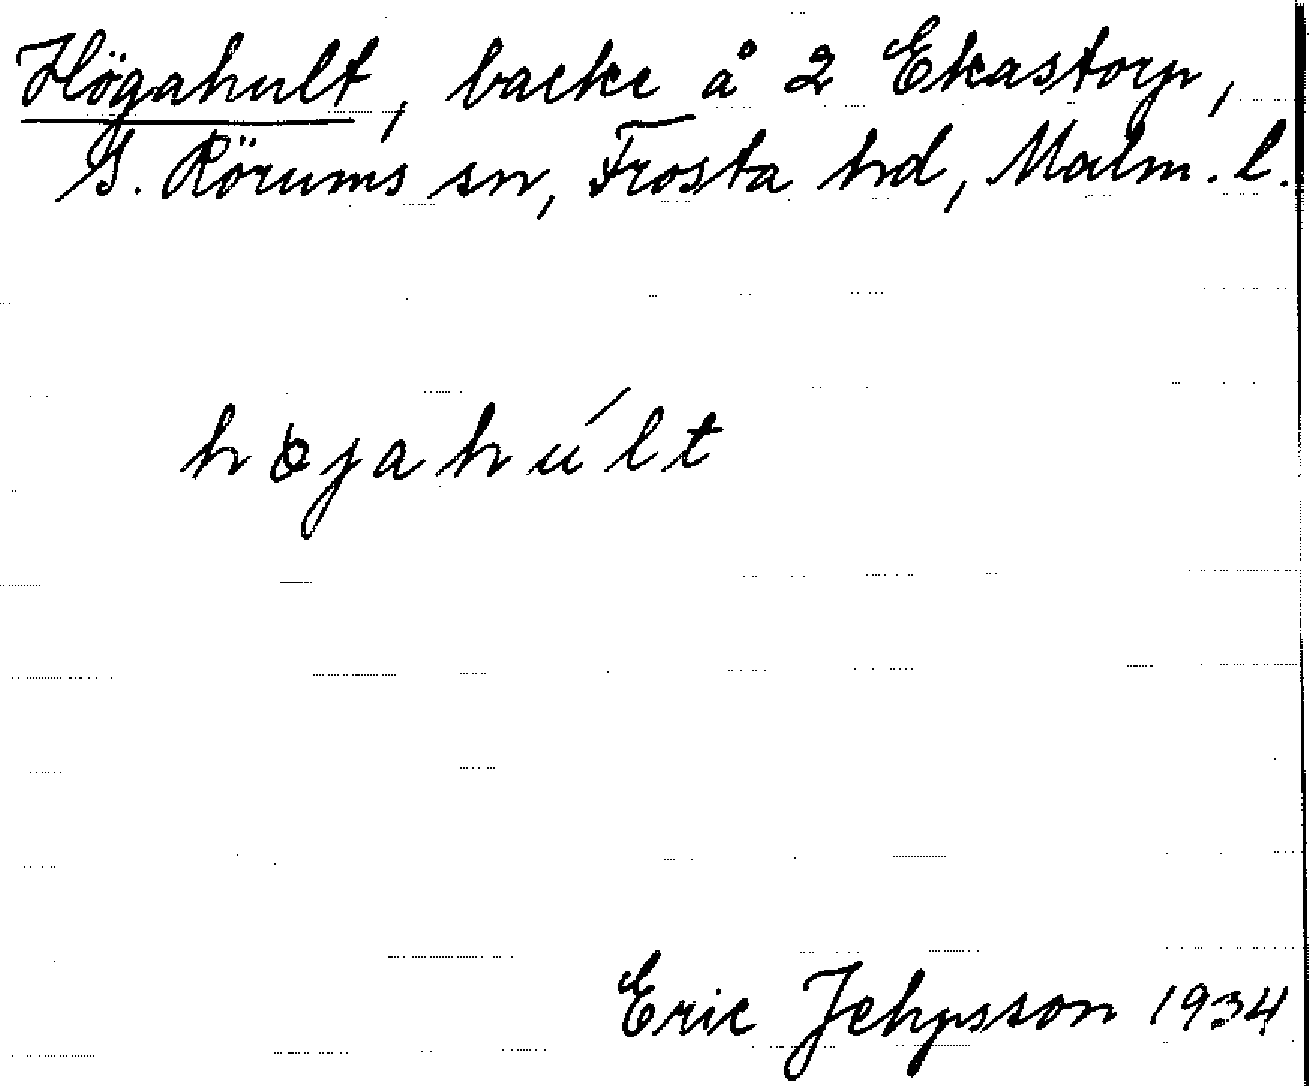 Högahult, backe å 2 Ekastorp,
S. Rörums sn, Frosta hd, Malm. l.
højahúlt
Eric Jehpsson 1934